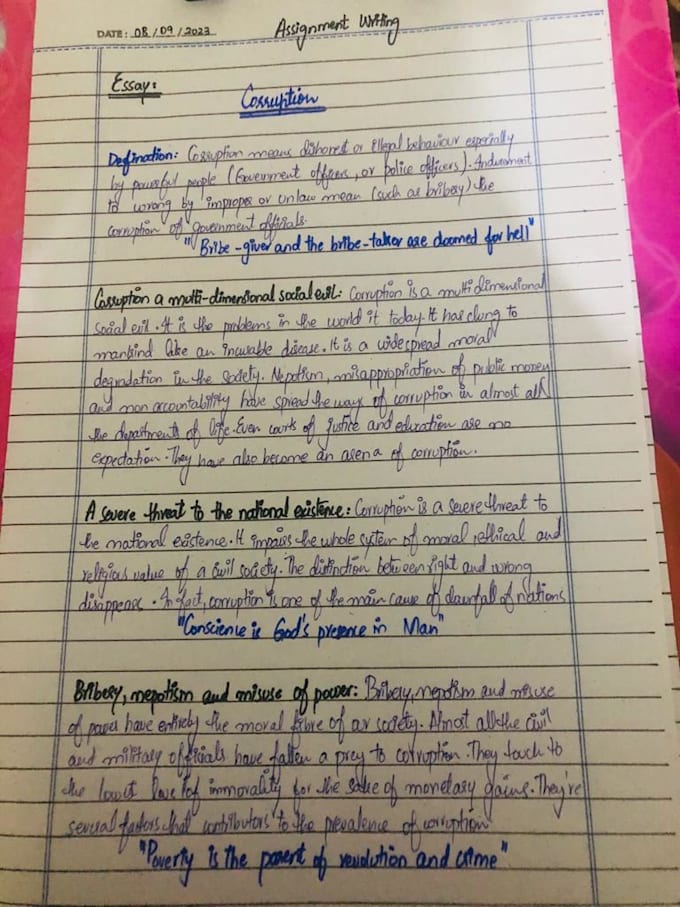 Assignment Writing
DATE: 08/09/2023
Essay:
Corruption
Defination: Corruption means dishonest or illegal behaviour especially
by powerful people (Government officers, or police officers). Inducement
to wrong by improper or unlaw mean (such as bribery) the
corruption of government officials.
"Bribe-giver and the bribe-taker are doomed for hell"
Corruption a multi-dimensional social evil: Corruption is a multi dimensional
social evil. It is the problems in the world it today. It has clung to
mankind like an incurable disease. It is a widespread moral
degradation in the society. Nepotism, misappropriation of public money
and non accountability have spread the way of corruption in almost all
the departments of life. Even courts of justice and education are no
expectation. They have also become an arena of corruption.
A severe threat to the national existence: Corruption is a severe threat to
the national existence. It impairs the whole system of moral, ethical and
religious value of a civil society. The distinction between right and wrong
disappears. In fact, corruption is one of the main cause of downfall of nations
"Conscience is God's presence in Man"
Bribery, nepotism and misuse of power: Bribery, nepotism and misuse
of power have entirely the moral fibre of our society. Almost all the civil
and military officials have fallen a prey to corruption. They touch to
the lowest level of immorality for the sake of monetary gains. They're
several factors that contributors to the prevalence of corruption
"Poverty is the parent of revolution and crime"